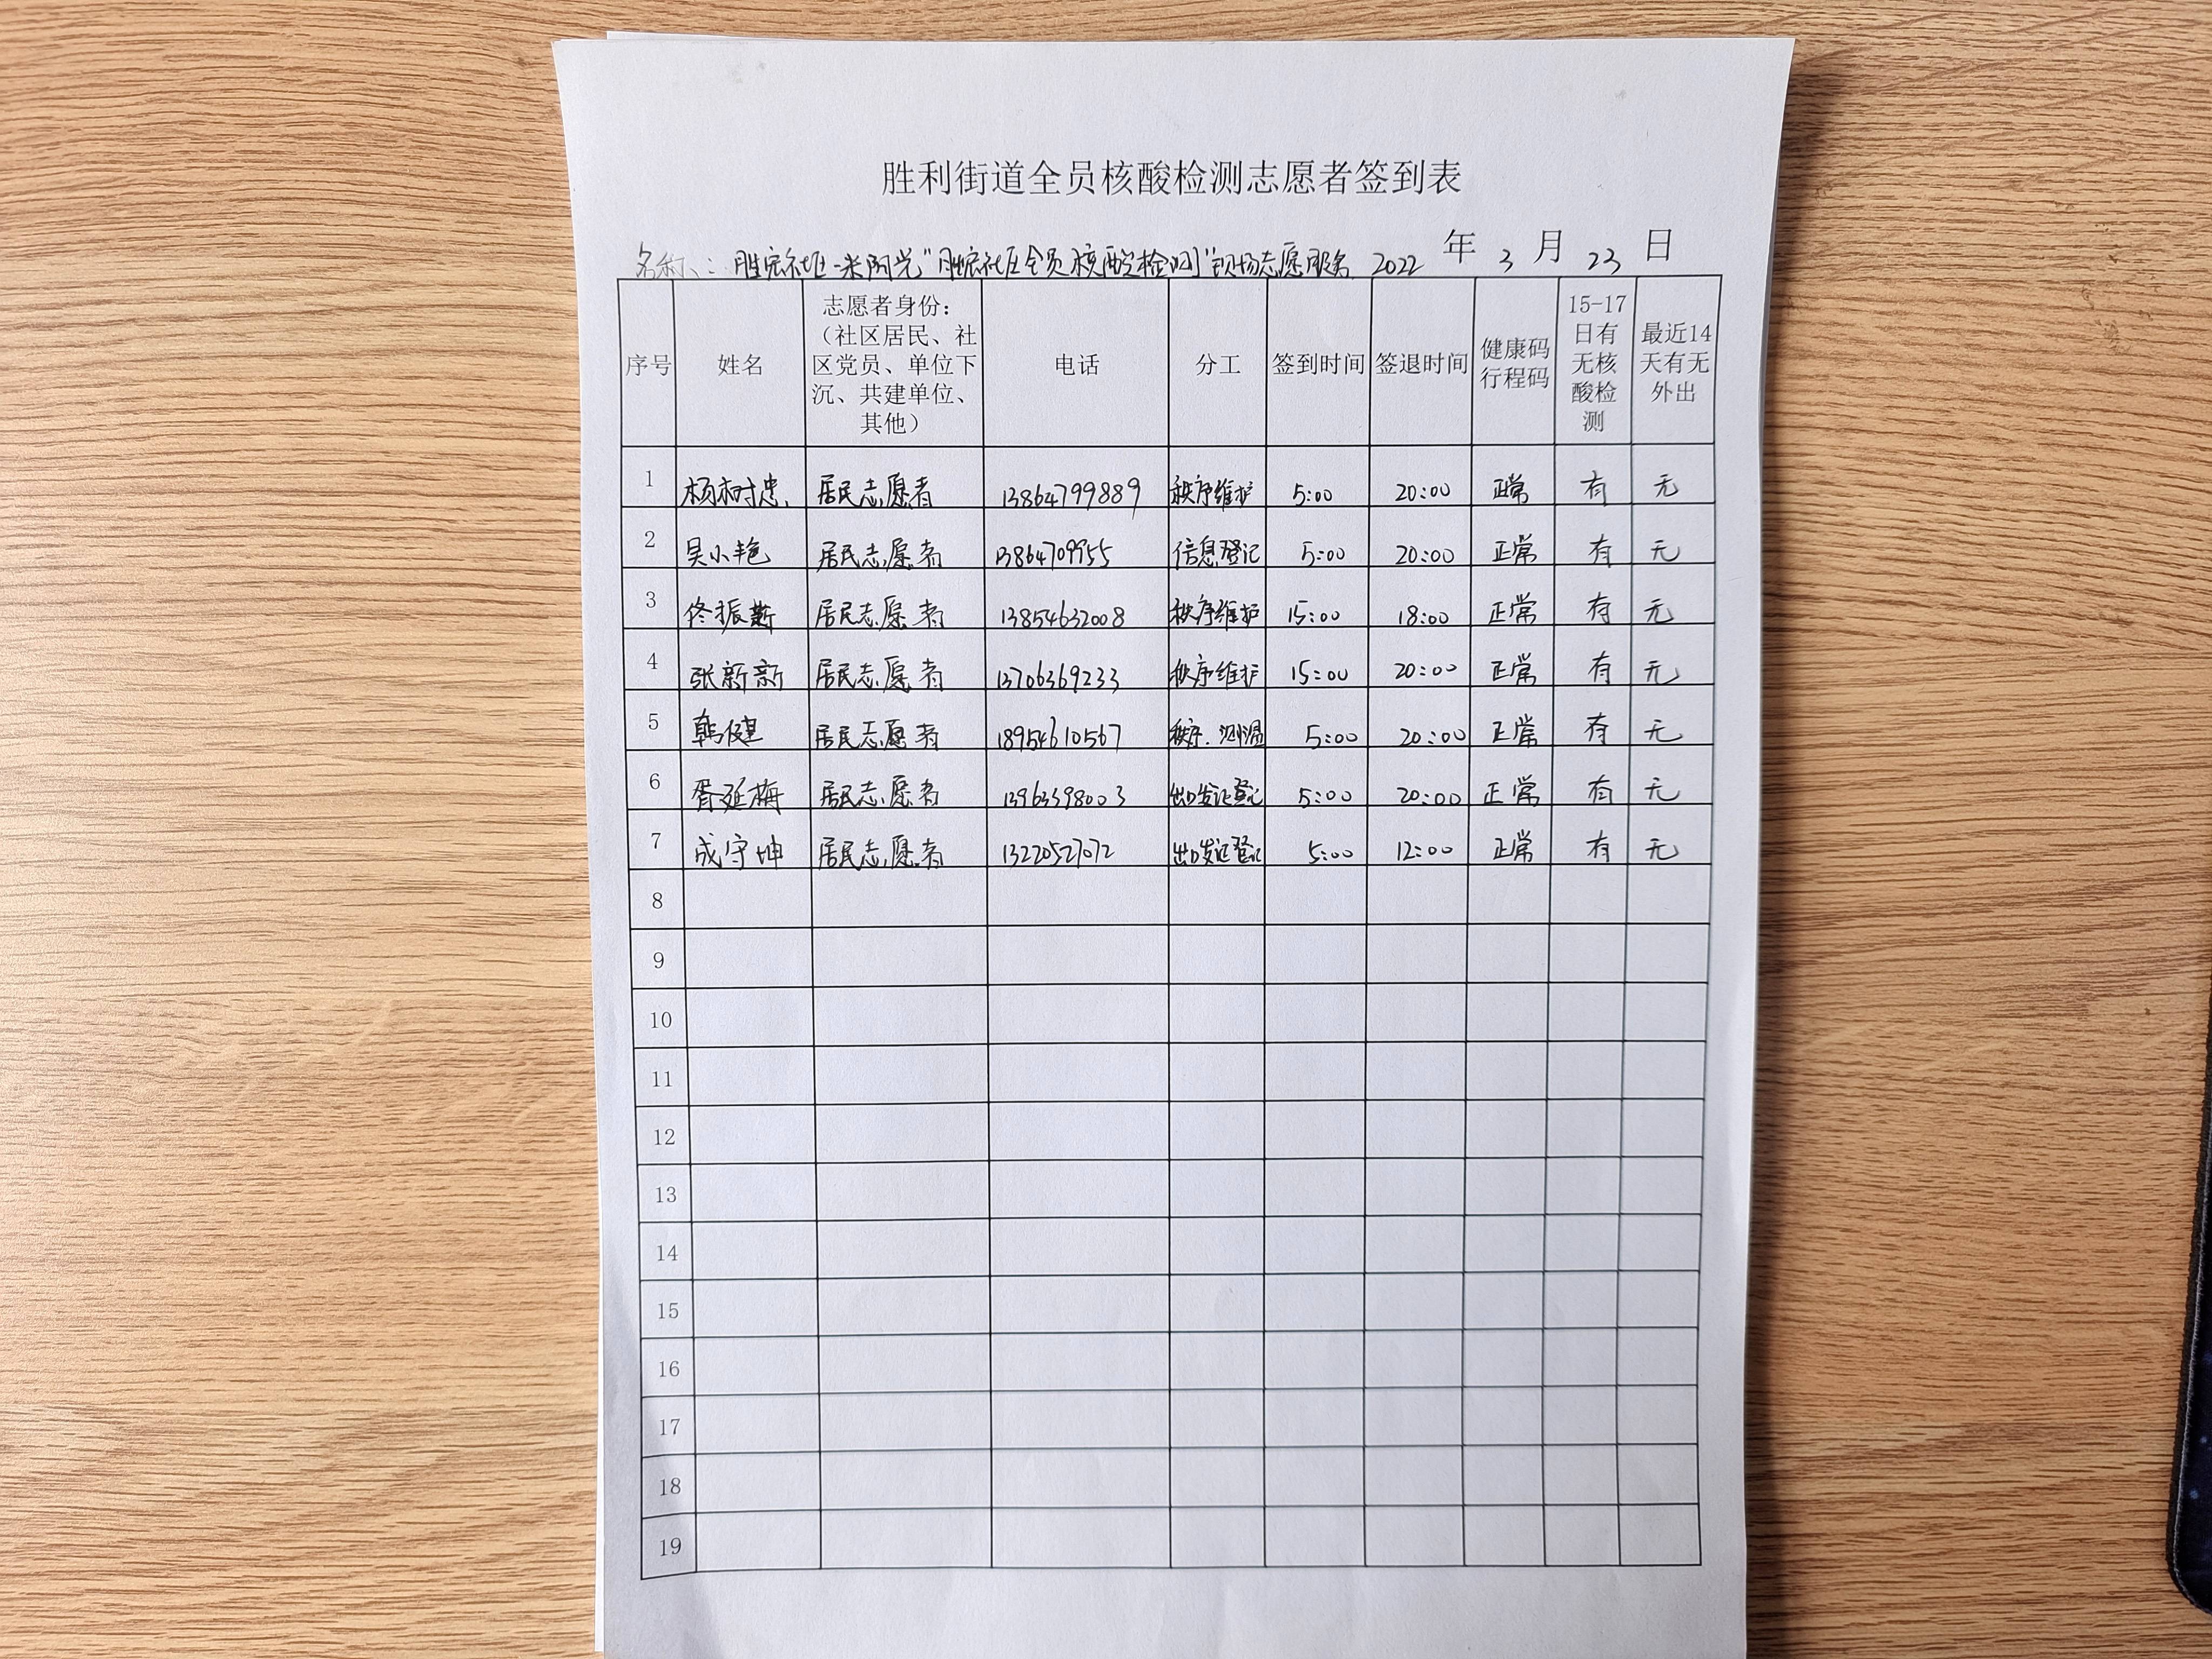 胜利街道全员核酸检测志愿者签到表
名称：胜宏社区-米阳光"胜宏社区全员核酸检测"现场志愿服务 2022 年 3 月 23 日
序号 姓名 志愿者身份：（社区居民、社区党员、单位下沉、共建单位、其他） 电话 分工 签到时间 签退时间 健康码行程码 15-17日有无核酸检测 最近14天有无外出
1 杨树忠 居民志愿者 13864799889 秩序维护 5:00 20:00 正常 有 无
2 吴小艳 居民志愿者 信息登记 5:00 20:00 正常 有 无
3 佟振 居民志愿者 13854632008 秩序维护 15:00 18:00 正常 有 无
4 张新新 居民志愿者 13706369233 秩序维护 15:00 20:00 正常 有 无
5 韩健 居民志愿者 18954610567 秩序、测温 5:00 20:00 正常 有 无
6 胥延梅 居民志愿者 13963398003 出口发证登记 5:00 20:00 正常 有 无
7 成守坤 居民志愿者 13220527072 出口发证登记 5:00 12:00 正常 有 无
8
9
10
11
12
13
14
15
16
17
18
19